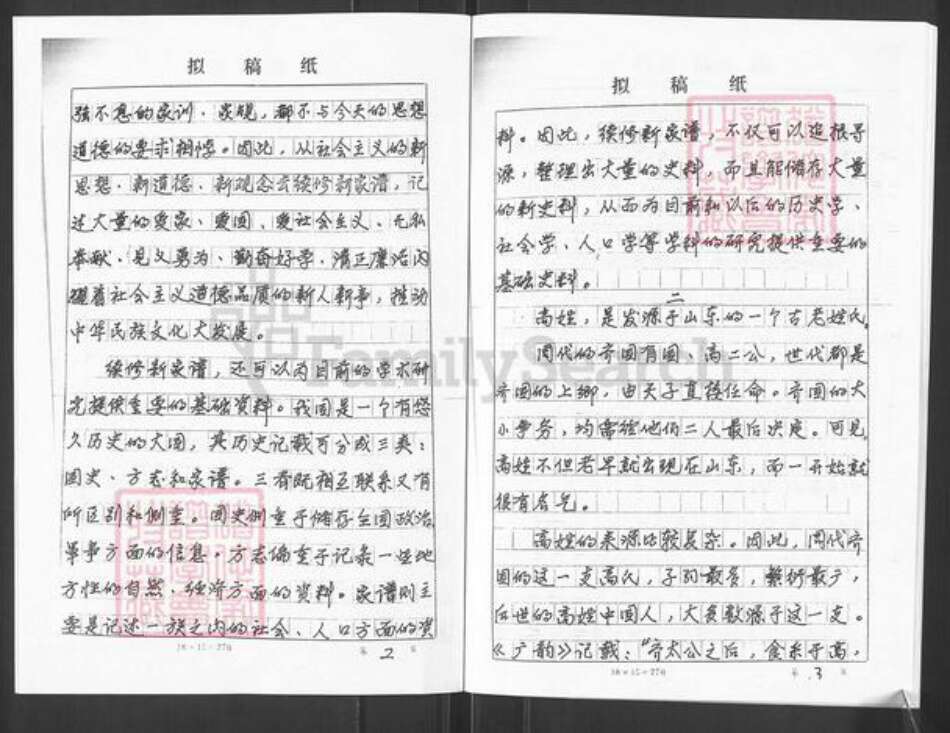 拟稿纸
强不息的家训、家规，都不与今天的思想
道德的要求相悖。因此，从社会主义的新
思想、新道德、新观念去续修新家谱，记
述大量的爱家、爱国、爱社会主义、无私
奉献、见义勇为、勤奋好学、清正廉洁内
蕴着社会主义道德品质的新人新事，推动
中华民族文化大发展。
续修新家谱，还可以为目前的学术研
究提供重要的基础资料。我国是一个有悠
久历史的大国，其历史记载可分成三类：
国史、方志和家谱。三者既相互联系又有
所区别和侧重。国史侧重于储存全国政治
军事方面的信息。方志偏重于记录一些地
方性的自然、经济方面的资料。家谱则主
要是记述一族之内的社会、人口方面的资
18×15=270
第2页
拟稿纸
料。因此，续修新家谱，不仅可以追根寻
源，整理出大量的史料，而且能储存大量
的新史料，从而为目前和以后的历史学、
社会学、人口学等学科的研究提供重要的
基础史料。
二
高姓，是发源于山东的一个古老姓氏。
周代的齐国有国、高二公，世代都是
齐国的上卿，由天子直接任命。齐国的大
小事务，均需经他们二人最后决定。可见
高姓不但老早就出现在山东，而一开始就
很有名气。
高姓的来源比较复杂。因此，周代齐
国的这一支高氏，子孙最多，繁衍最广，
后世的高姓中国人，大多数源于这一支。
《广韵》记载：“齐太公之后，食采于高，
18×15=270
第3页
FamilySearch